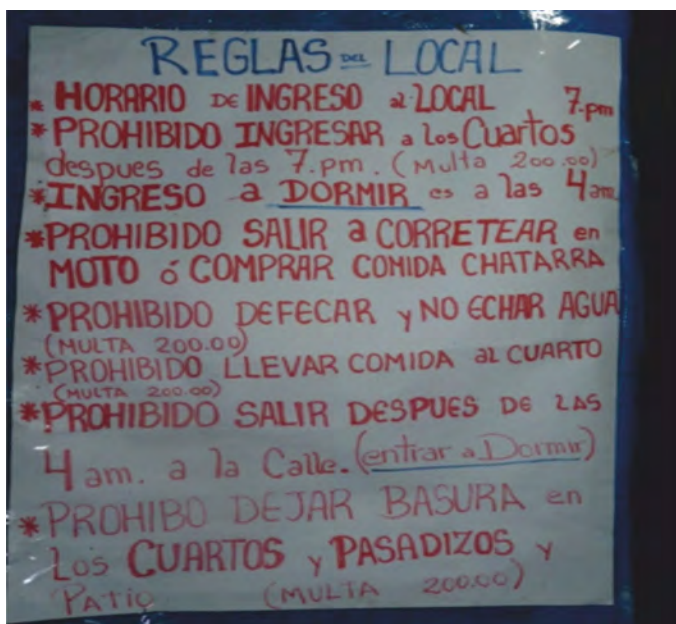 REGLAS DEL LOCAL
* HORARIO DE INGRESO al LOCAL 7.pm
* PROHIBIDO INGRESAR a Los Cuartos
despues de las 7.pm. (Multa 200.00)
* INGRESO a DORMIR es a las 4am
* PROHIBIDO SALIR a CORRETEAR en
MOTO ó COMPRAR COMIDA CHATARRA
* PROHIBIDO DEFECAR y NO ECHAR AGUA
(MULTA 200.00)
* PROHIBIDO LLEVAR COMIDA al CUARTO
(MULTA 200.00)
* PROHIBIDO SALIR DESPUES DE LAS
4am. a la Calle. (entrar a Dormir)
* PROHIBO DEJAR BASURA en
Los CUARTOS y PASADIZOS y
PATIO (MULTA 200.00)